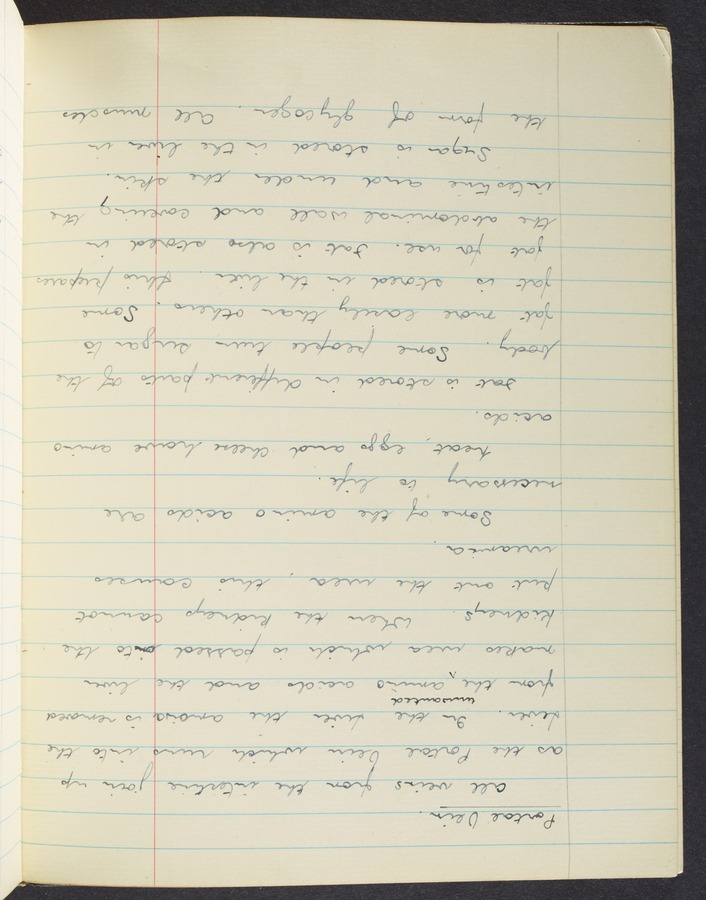 Portal Vein.
All veins from the intestine join up
as the Portal Vein which runs into the
liver. In the liver the amonia is removed
unwanted
from the ^ amino acids and the liver
makes urea which is passed into the
kidneys. When the kidneys cannot
put out the urea, this causes
uraemia.
Some of the amino acids are
necessary to life.
Meat, eggs and cheese have amino
acids.
Fat is stored in different parts of the
body. Some people turn sugar to
fat more easily than others. Some
fat is stored in the liver. This prepares
fat for use. Fat is also stored in
the abdominal wall and covering the
intestine and under the skin.
Sugar is stored in the liver in
the form of glycogen. All muscles